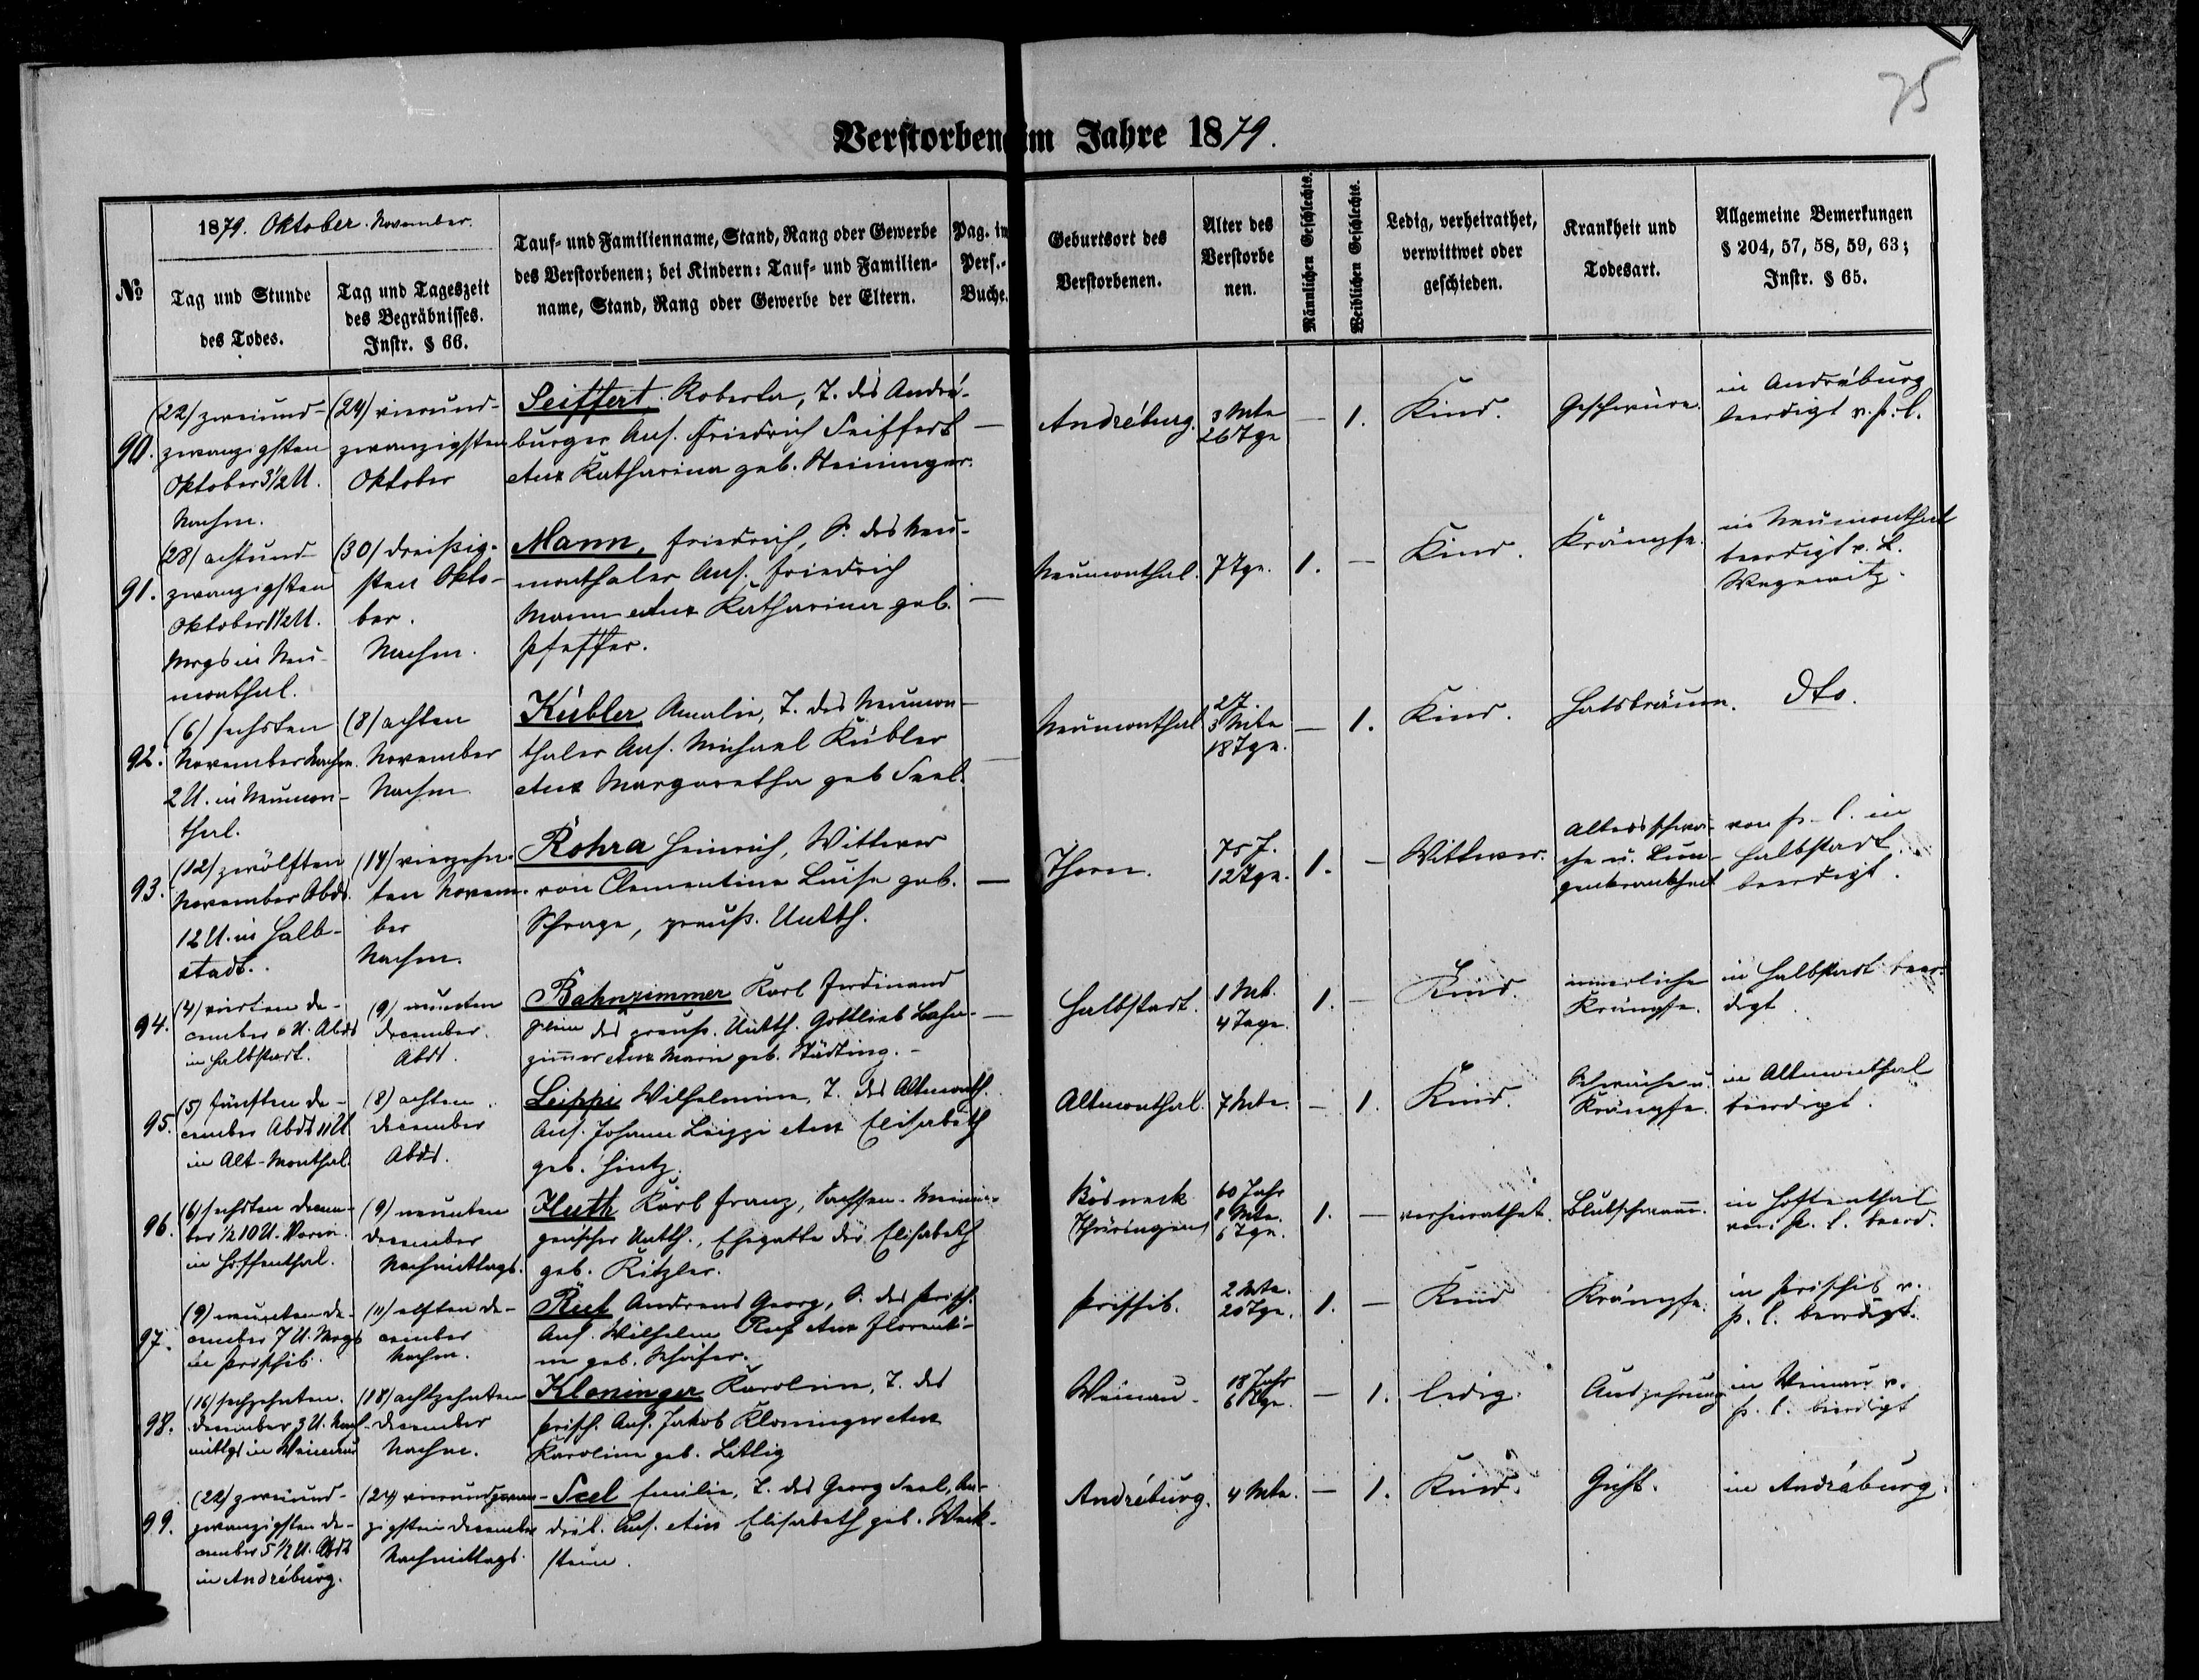 75
Verstorben im Jahre 1879.
№
1879. Oktober. November.
Tag und Stunde
des Todes.
Tag und Tageszeit
des Begräbnisses.
Instr. § 66.
Tauf- und Familienname, Stand, Rang oder Gewerbe
des Verstorbenen; bei Kindern: Tauf- und Familien-
name, Stand, Rang oder Gewerbe der Eltern.
Pag. im
Pers.-
Buche.
Geburtsort des
Verstorbenen.
Alter des
Verstorbe
nen.
Männlichen Geschlechts.
Weiblichen Geschlechts.
Ledig, verheirathet,
verwittwet oder
geschieden.
Krankheit und
Todesart.
Allgemeine Bemerkungen
§ 204, 57, 58, 59, 63;
Instr. § 65.
90.
(22) zweiund-
zwanzigsten
Oktober 3½ U.
Nachm.
(24) vierund-
zwanzigsten
Oktober
Seiffert, Roberta, T. des André-
burger Ans. Friedrich Seiffert —
et ux Katharina geb. Steininger.
Andréburg.
3 Mte
26 Tge
— 1.
Kind.
Geschwüre.
in Andréburg
beerdigt v. P. l.
91.
(28) achtund
zwanzigsten
Oktober 1½ U.
Mrgs in Neu-
monthal.
(30) dreißig-
sten Okto-
ber.
Nachm.
Mann, Friedrich, S. des Neu-
monthaler Ans. Friedrich
Mann et ux Katharina geb. —
Pfeffer.
Neumonthal.
7 Tge.
1. —
Kind.
Krämpfe.
in Neumonthal
beerdigt v. L.
92.
(6) sechsten
November Nachm.
2 U. in Neumon-
thal.
(8) achten
November
Nachm.
Kübler Amalie, T. des Neumon-
thaler Ans. Michael Kübler
et ux Margaretha geb Seel.
Neumonthal
2 J.
3 Mte
18 Tge.
— 1.
Kind.
Halsbräune.
dto.
93.
(12) zwölften
November Abds.
12 U. in Halb-
stadt.
(14) vierzehn-
ten Novem-
ber
Nachm.
Rohra Heinrich, Wittwer
von Clementine Luise geb. —
Schrage, preuß. Untth.
Thorn.
75 J.
12 Tge.
1. —
Wittwer.
Altersschwä-
che u. Lun-
genkrankheit
von P. l. in
Halbstadt
beerdigt.
94.
(4) vierten de-
cember 6 U. Abds
in Halbstadt.
(9) neunten
December.
Abds.
Bahnzimmer Karl Ferdinand
Sohn des preuß. Untth. Gottlieb Bahn- —
zimmer et ux Marie geb. Städting. -
Halbstadt.
1 Mt.
4 Tage.
1. —
Kind.
innerliche
Krämpfe.
in Halbstadt beer-
digt.
95.
(5) fünften de-
cember Abds 11 U
in Alt-Monthal.
(8) achten
December
Abds.
Leippi Wilhelmine, T. des Altmonth.
Ans. Johann Leippi et ux Elisabeth
geb. Hintz.
Altmonthal.
7 Mte.
— 1.
Kind.
Schwäche u.
Krämpfe.
in Altmonthal
beerdigt.
96.
(6) sechsten decem-
ber ½ 10 U. Vorm.
in Hoffenthal.
(9) neunten
December
Nachmittags.
Huth Karl Franz, Sachsen-Meinin-
genscher Untth., Ehegatte der Elisabeth
geb. Kitzler.
Bösneck
Thüringen
60 Jahr
8 Mte.
6 Tge.
1. —
verheirathet.
Blutschwamm.
in Hoffenthal
von P. l. beerd.
97.
(9) neunten de-
cember 7 U. Mrgs
in Prischib.
(11) elften de-
cember
Nachm.
Ruf Andreas Georg, S. des Prisch.
Ans. Wilhelm Ruf et ux Florenti-
ne geb. Schäfer.
Prischib.
2 Mte.
20 Tge.
1. —
Kind
Krämpfe.
in Prischib v.
P. l. beerdigt.
98.
(16) sechzehnten
December 3 U. Nach-
mittgs in Weinau
(18) achtzehnten
December
Nachm.
Kloninger Karoline, T. des
Prisch. Ans. Jakob Kloninger et ux
Karoline geb. Littig
Weinau
18 Jahr
6 Tge.
— 1.
ledig.
Auszehrung
in Weinau v.
P. l. beerdigt
99.
(22) zweiund-
zwanzigsten de-
cember 5½ U. Abds
in Andréburg.
(24) vierundzwan-
zigsten December
Nachmittags.
Seel Emilie, T. des Georg Seel, An-
dréb. Ans. et ux Elisabeth geb. Weck-
stein.
Andréburg.
4 Mte.
— 1.
Kind.
Gicht.
in Andréburg.